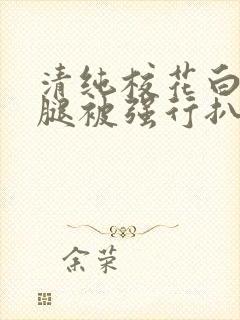 清纯校花白
腿被强行扒
余荣